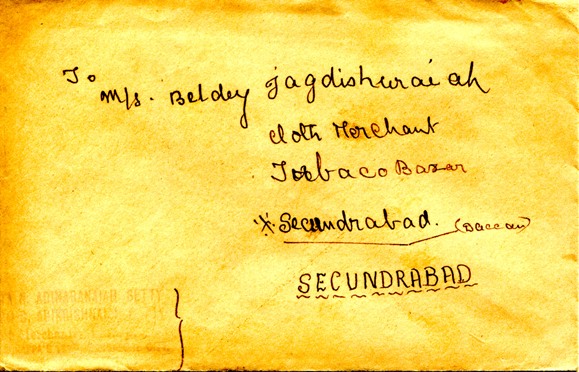 To
M/s. Beldey Jagdishwraiah
Cloth Merchant
Tobbaco Bazar
Secundrabad. (Daccan)
SECUNDRABAD
SETTY